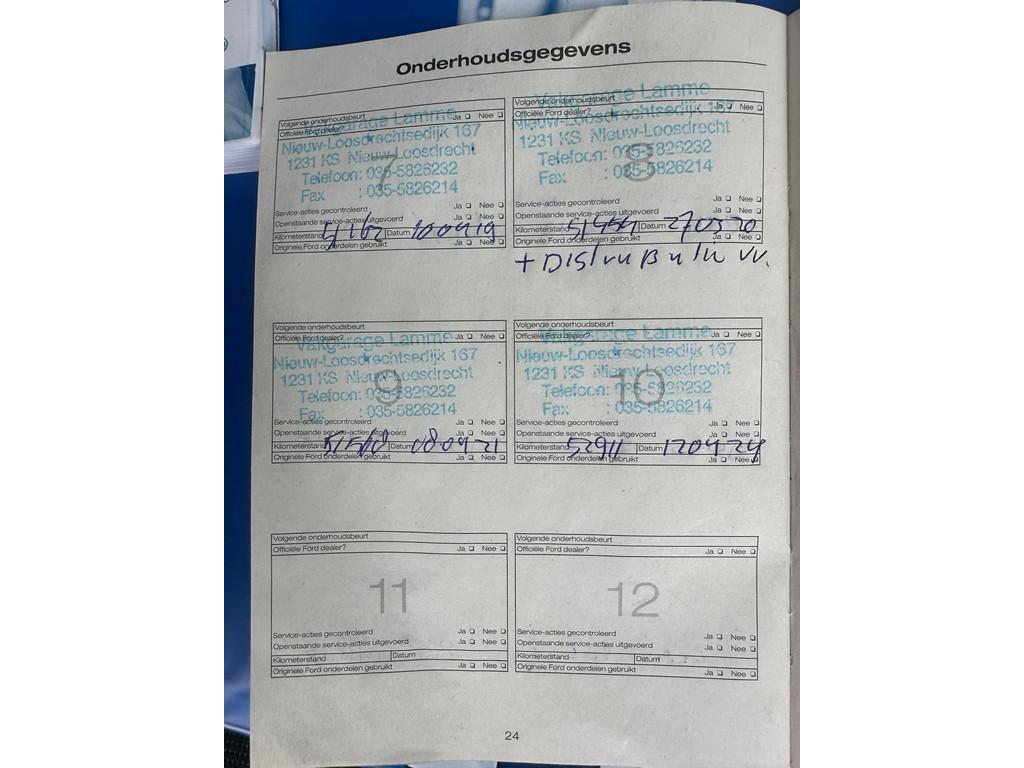 Onderhoudsgegevens
Volgende onderhoudsbeurt
Officiële Ford dealer? Ja Nee
Vakgarage Lamme
Nieuw-Loosdrechtsedijk 167
1231 KS Nieuw-Loosdrecht
7
Telefoon: 035-5826232
Fax : 035-5826214
Service-acties gecontroleerd Ja Nee
Openstaande service-acties uitgevoerd Ja Nee
Kilometerstand 51162 Datum 100919
Originele Ford onderdelen gebruikt Ja Nee
Volgende onderhoudsbeurt
Officiële Ford dealer? Ja Nee
Vakgarage Lamme
Nieuw-Loosdrechtsedijk 167
1231 KS Nieuw-Loosdrecht
8
Telefoon: 035-5826232
Fax : 035-5826214
Service-acties gecontroleerd Ja Nee
Openstaande service-acties uitgevoerd Ja Nee
Kilometerstand Datum 270520
Originele Ford onderdelen gebruikt Ja Nee
Volgende onderhoudsbeurt
Officiële Ford dealer? Ja Nee
Vakgarage Lamme
Nieuw-Loosdrechtsedijk 167
1231 KS Nieuw-Loosdrecht
9
Telefoon: 035-5826232
Fax : 035-5826214
Service-acties gecontroleerd Ja Nee
Openstaande service-acties uitgevoerd Ja Nee
Kilometerstand Datum 080921
Originele Ford onderdelen gebruikt Ja Nee
Volgende onderhoudsbeurt
Officiële Ford dealer? Ja Nee
Vakgarage Lamme
Nieuw-Loosdrechtsedijk 167
1231 KS Nieuw-Loosdrecht
10
Telefoon: 035-5826232
Fax : 035-5826214
Service-acties gecontroleerd Ja Nee
Openstaande service-acties uitgevoerd Ja Nee
Kilometerstand 52911 Datum 120924
Originele Ford onderdelen gebruikt Ja Nee
Volgende onderhoudsbeurt
Officiële Ford dealer? Ja Nee
11
Service-acties gecontroleerd Ja Nee
Openstaande service-acties uitgevoerd Ja Nee
Kilometerstand Datum
Originele Ford onderdelen gebruikt Ja Nee
Volgende onderhoudsbeurt
Officiële Ford dealer? Ja Nee
12
Service-acties gecontroleerd Ja Nee
Openstaande service-acties uitgevoerd Ja Nee
Kilometerstand Datum
Originele Ford onderdelen gebruikt Ja Nee
24